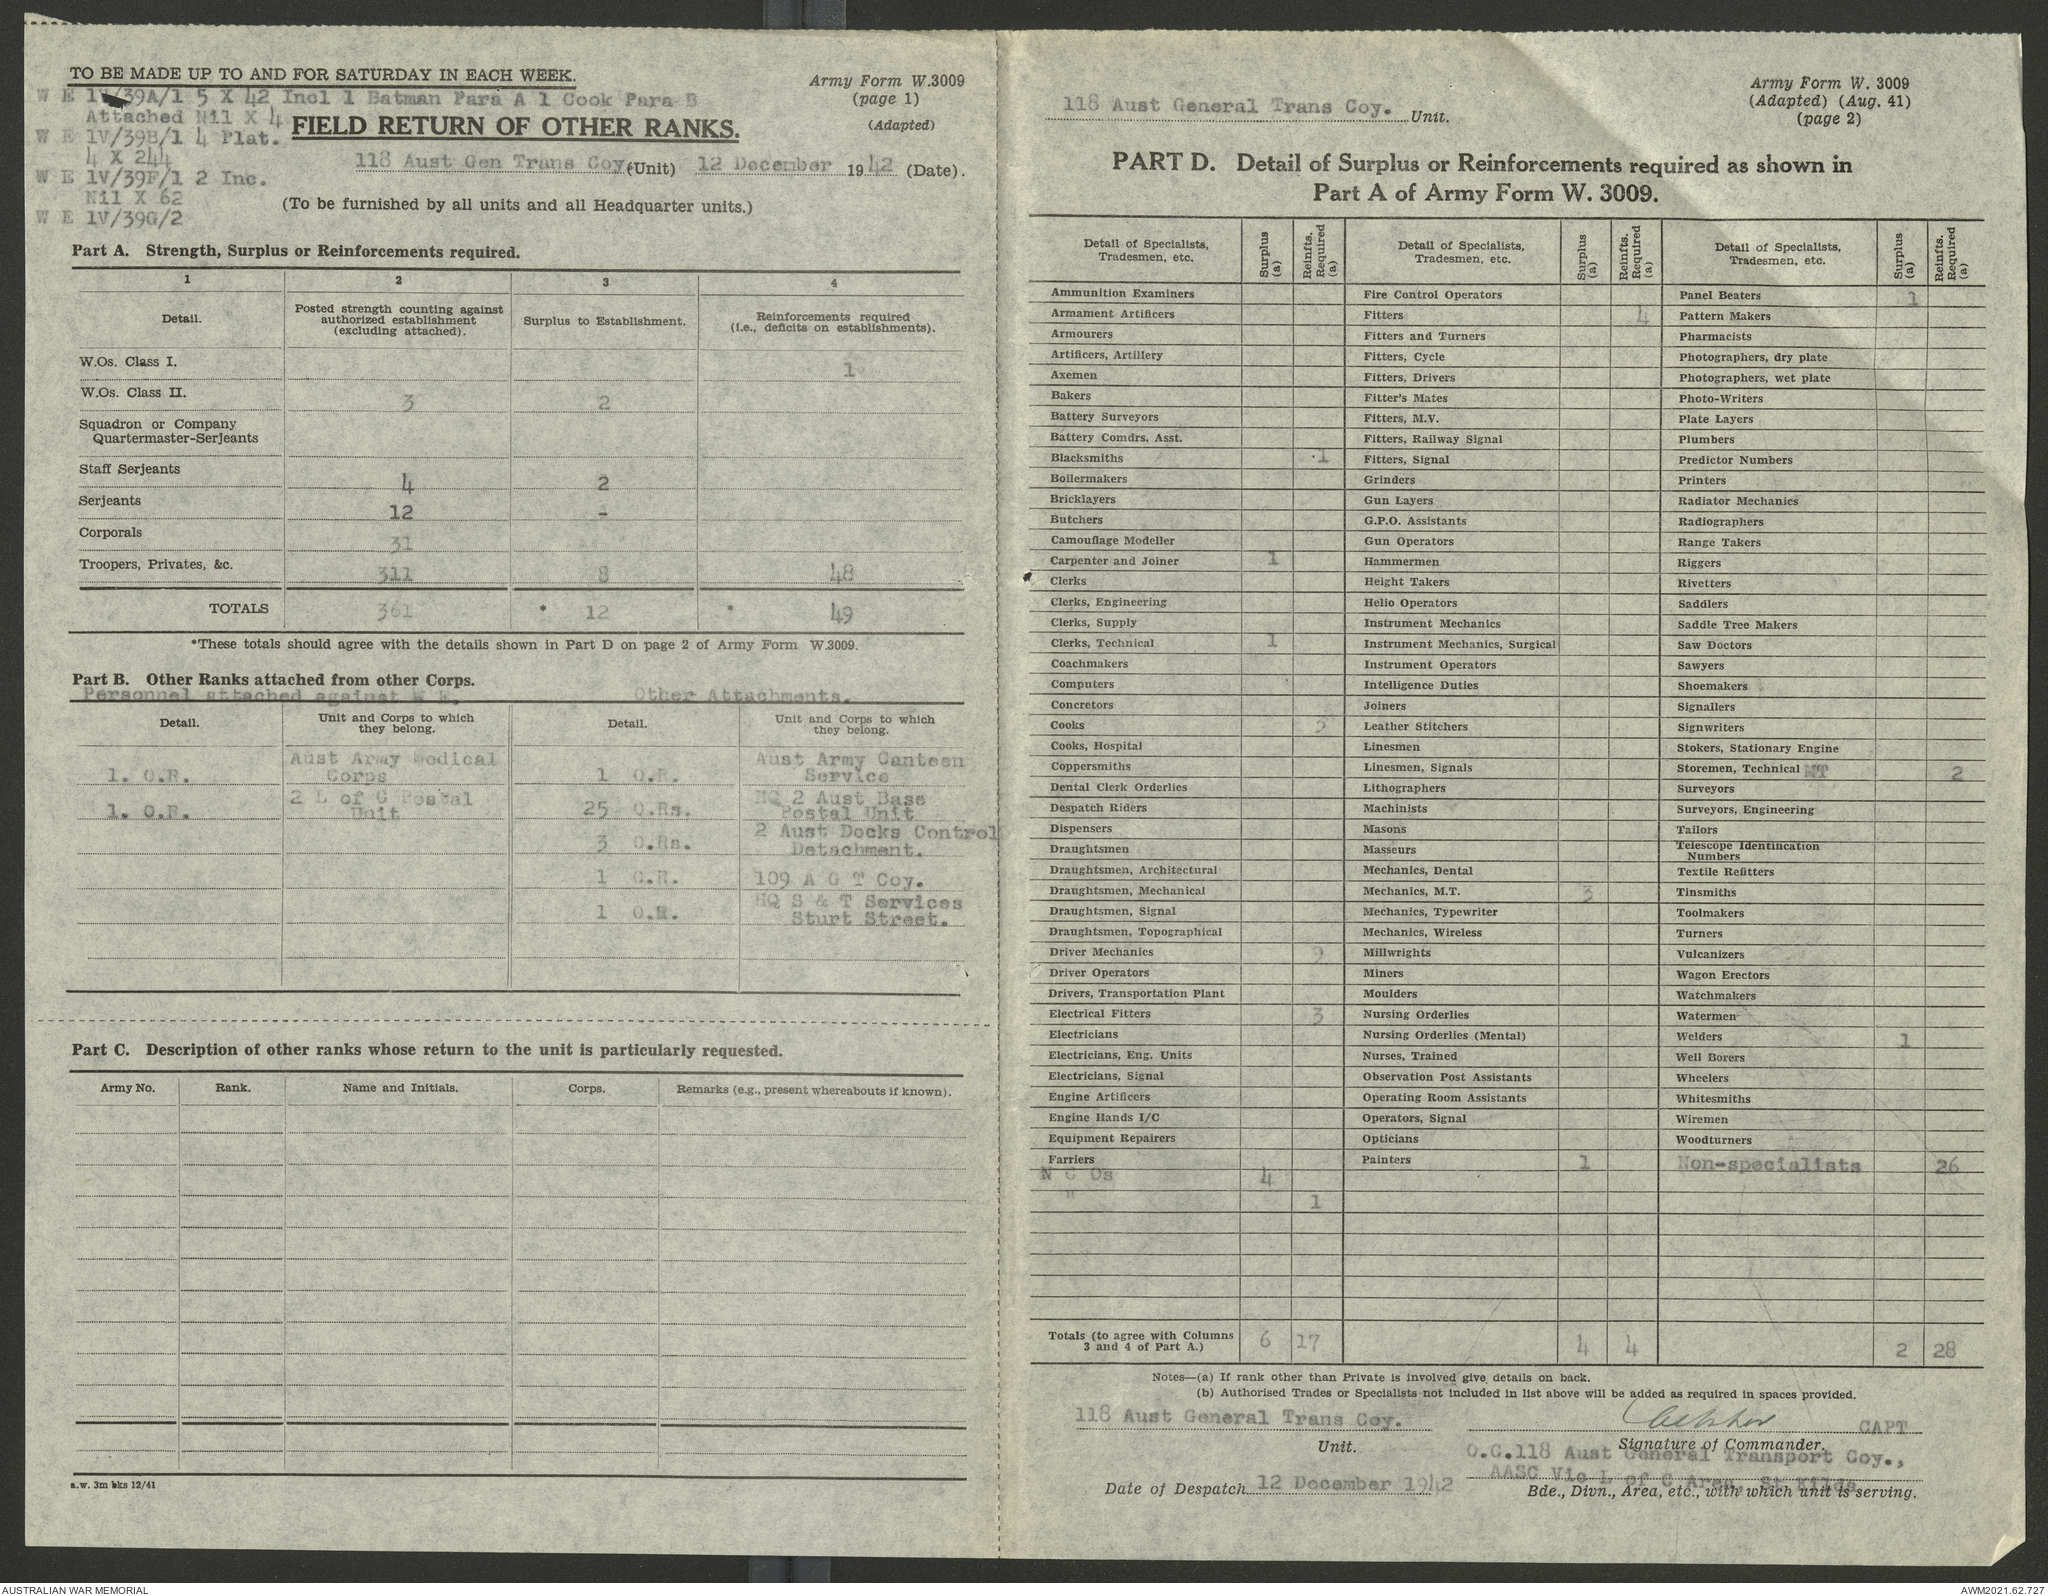 TO BE MADE UP TO AND FOR SATURDAY IN EACH WEEK.
Army Form W.3009
(page 1)
(Adapted)
W E 1V/39A/1 5 X 42 Incl 1 Batman Para A 1 Cook Para B
Attached Nil X 4
W E 1V/39B/1 4 Plat.
4 X 244
W E 1V/39F/1 2 Inc.
Nil X 62
W E 1V/39G/2
FIELD RETURN OF OTHER RANKS.
118 Aust Gen Trans Coy. (Unit) 12 December 1942 (Date).
(To be furnished by all units and all Headquarter units.)
Part A. Strength, Surplus or Reinforcements required.
1 2 3 4
Detail. Posted strength counting against authorized establishment (excluding attached). Surplus to Establishment. Reinforcements required (i.e., deficits on establishments).
W.Os. Class I. 1
W.Os. Class II. 3 2
Squadron or Company
Quartermaster-Serjeants
Staff Serjeants 4 2
Serjeants 12 -
Corporals 31
Troopers, Privates, &c. 311 8 48
TOTALS 361 * 12 * 49
*These totals should agree with the details shown in Part D on page 2 of Army Form W.3009.
Part B. Other Ranks attached from other Corps.
Personnel attached against W E. Other Attachments.
Detail. Unit and Corps to which they belong. Detail. Unit and Corps to which they belong.
1. O.R. Aust Army Medical Corps 1 O.R. Aust Army Canteen Service
1. O.R. 2 L of C Postal Unit 25 O.Rs. HQ 2 Aust Base Postal Unit
3 O.Rs. 2 Aust Docks Control Detachment.
1 O.R. 109 A G T Coy.
1 O.R. HQ S & T Services Sturt Street.
Part C. Description of other ranks whose return to the unit is particularly requested.
Army No. Rank. Name and Initials. Corps. Remarks (e.g., present whereabouts if known).
a.w. 3m bks 12/41
118 Aust General Trans Coy. Unit.
Army Form W. 3009
(Adapted) (Aug. 41)
(page 2)
PART D. Detail of Surplus or Reinforcements required as shown in
Part A of Army Form W. 3009.
Detail of Specialists, Tradesmen, etc. Surplus (a) Reinfts. Required (a) Detail of Specialists, Tradesmen, etc. Surplus (a) Reinfts. Required (a) Detail of Specialists, Tradesmen, etc. Surplus (a) Reinfts. Required (a)
Ammunition Examiners Fire Control Operators Panel Beaters 1
Armament Artificers Fitters 4 Pattern Makers
Armourers Fitters and Turners Pharmacists
Artificers, Artillery Fitters, Cycle Photographers, dry plate
Axemen Fitters, Drivers Photographers, wet plate
Bakers Fitter's Mates Photo-Writers
Battery Surveyors Fitters, M.V. Plate Layers
Battery Comdrs. Asst. Fitters, Railway Signal Plumbers
Blacksmiths 1 Fitters, Signal Predictor Numbers
Boilermakers Grinders Printers
Bricklayers Gun Layers Radiator Mechanics
Butchers G.P.O. Assistants Radiographers
Camouflage Modeller Gun Operators Range Takers
Carpenter and Joiner 1 Hammermen Riggers
Clerks Height Takers Rivetters
Clerks, Engineering Helio Operators Saddlers
Clerks, Supply Instrument Mechanics Saddle Tree Makers
Clerks, Technical 1 Instrument Mechanics, Surgical Saw Doctors
Coachmakers Instrument Operators Sawyers
Computers Intelligence Duties Shoemakers
Concretors Joiners Signallers
Cooks 3 Leather Stitchers Signwriters
Cooks, Hospital Linesmen Stokers, Stationary Engine
Coppersmiths Linesmen, Signals Storemen, Technical MT 2
Dental Clerk Orderlies Lithographers Surveyors
Despatch Riders Machinists Surveyors, Engineering
Dispensers Masons Tailors
Draughtsmen Masseurs Telescope Identification Numbers
Draughtsmen, Architectural Mechanics, Dental Textile Refitters
Draughtsmen, Mechanical Mechanics, M.T. 3 Tinsmiths
Draughtsmen, Signal Mechanics, Typewriter Toolmakers
Draughtsmen, Topographical Mechanics, Wireless Turners
Driver Mechanics 9 Millwrights Vulcanizers
Driver Operators Miners Wagon Erectors
Drivers, Transportation Plant Moulders Watchmakers
Electrical Fitters 3 Nursing Orderlies Watermen
Electricians Nursing Orderlies (Mental) Welders 1
Electricians, Eng. Units Nurses, Trained Well Borers
Electricians, Signal Observation Post Assistants Wheelers
Engine Artificers Operating Room Assistants Whitesmiths
Engine Hands I/C Operators, Signal Wiremen
Equipment Repairers Opticians Woodturners
Farriers Painters 1 Non-specialists 26
N C Os 4
" 1
Totals (to agree with Columns 3 and 4 of Part A.) 6 17 4 4 2 28
Notes—(a) If rank other than Private is involved give details on back.
(b) Authorised Trades or Specialists not included in list above will be added as required in spaces provided.
118 Aust General Trans Coy. CAPT
Unit. Signature of Commander.
O.C.118 Aust General Transport Coy.,
AASC Vic L of C Area, St Kilda
Date of Despatch 12 December 1942 Bde., Divn., Area, etc., with which unit is serving.
AUSTRALIAN WAR MEMORIAL AWM2021.62.727